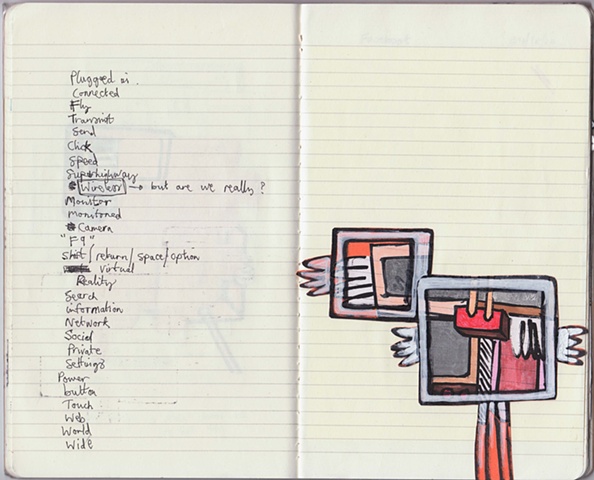 Plugged in.
Connected
Fly
Transmit
Send
Click
Speed
Superhighway
Wireless → but are we really?
Monitor
Monitored
Camera
"F9"
shift/return/space/option
Virtual
Reality
Search
information
Network
Social
Private
Settings
Power
button
Touch
Web
World
Wide